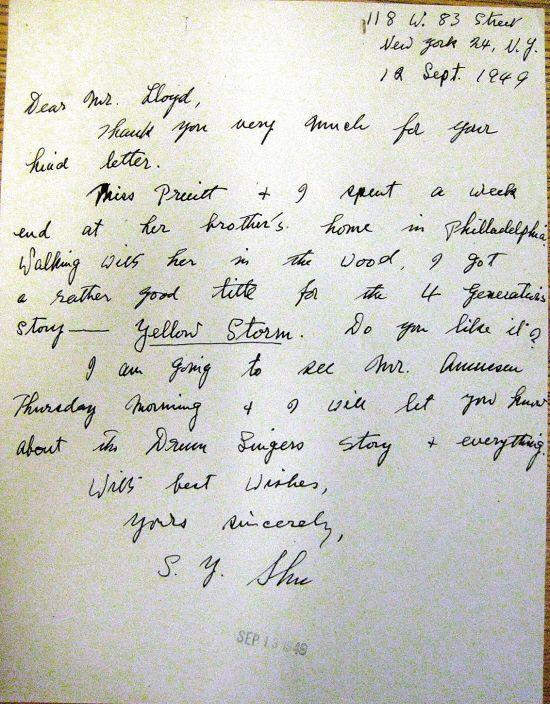 118 W. 83 Street
New York 24, N.Y.
12 Sept. 1949
Dear Mr. Lloyd,
Thank you very much for your
kind letter.
Miss Pruitt + I spent a week
end at her brother's home in Philladelphia.
Walking with her in the wood, I got
a rather good title for the 4 Generations
story — Yellow Storm. Do you like it?
I am going to see Mr.
Thursday morning + I will let you know
about the Drum Singers story + everything.
With best wishes,
Yours sincerely,
S. Y. Shu
SEP 13 1949